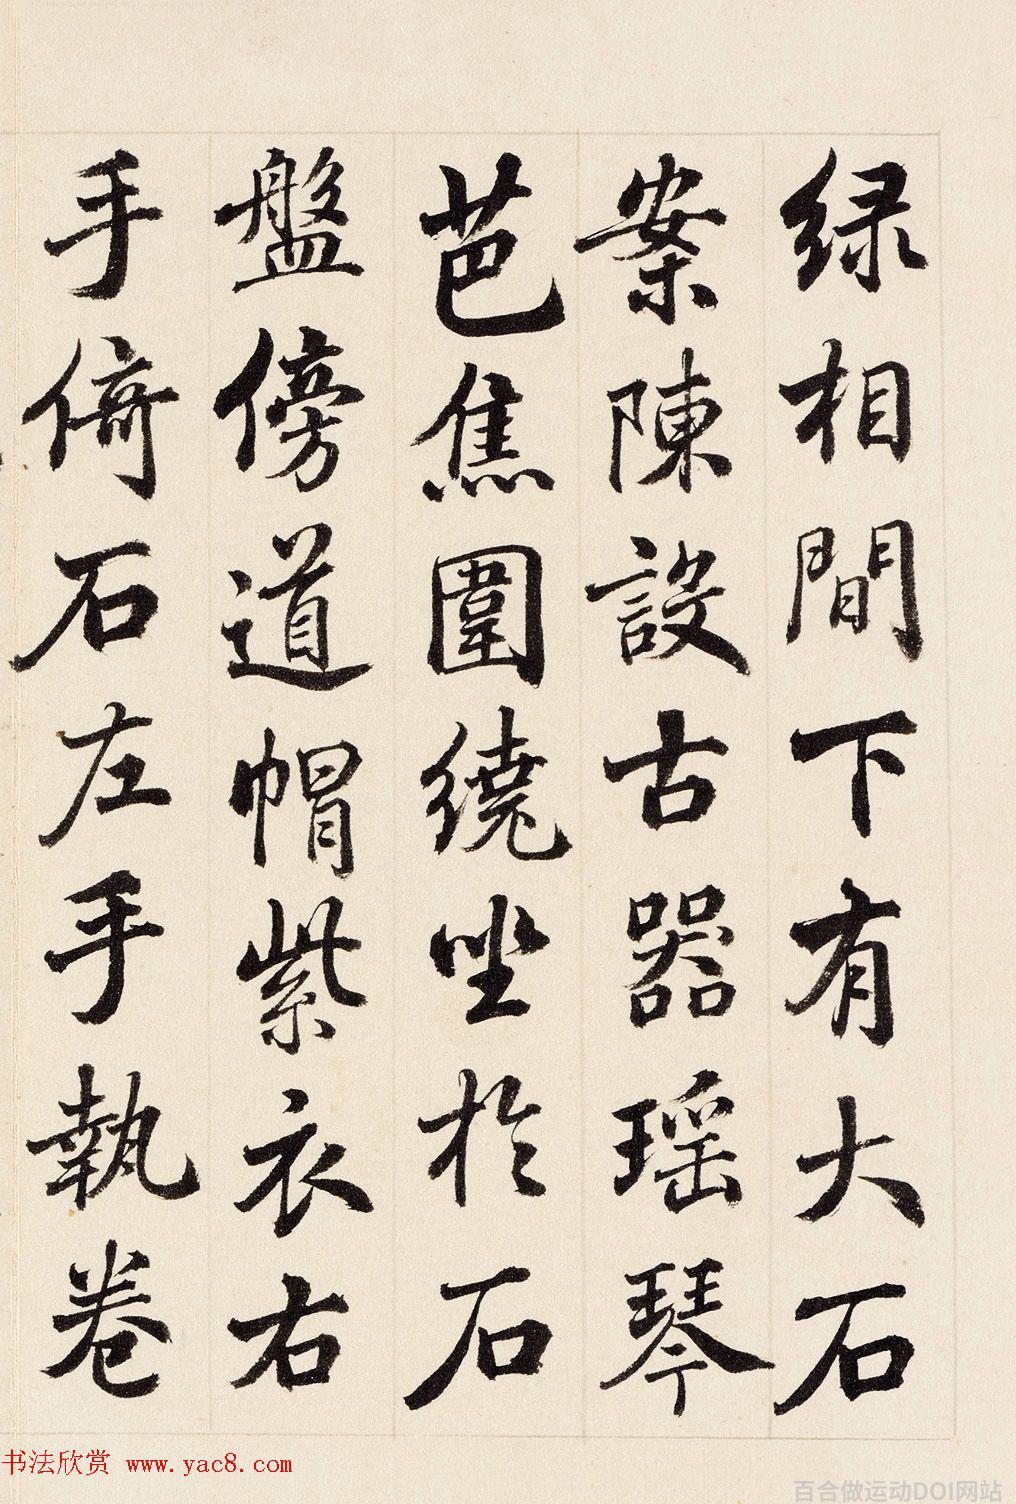 绿相間下有大石
案陳設古器瑶琴
芭焦圍繞坐於石
盤傍道帽紫衣右
手倚石左手執卷
书法欣赏 www.yac8.com
百合做运动DOI网站